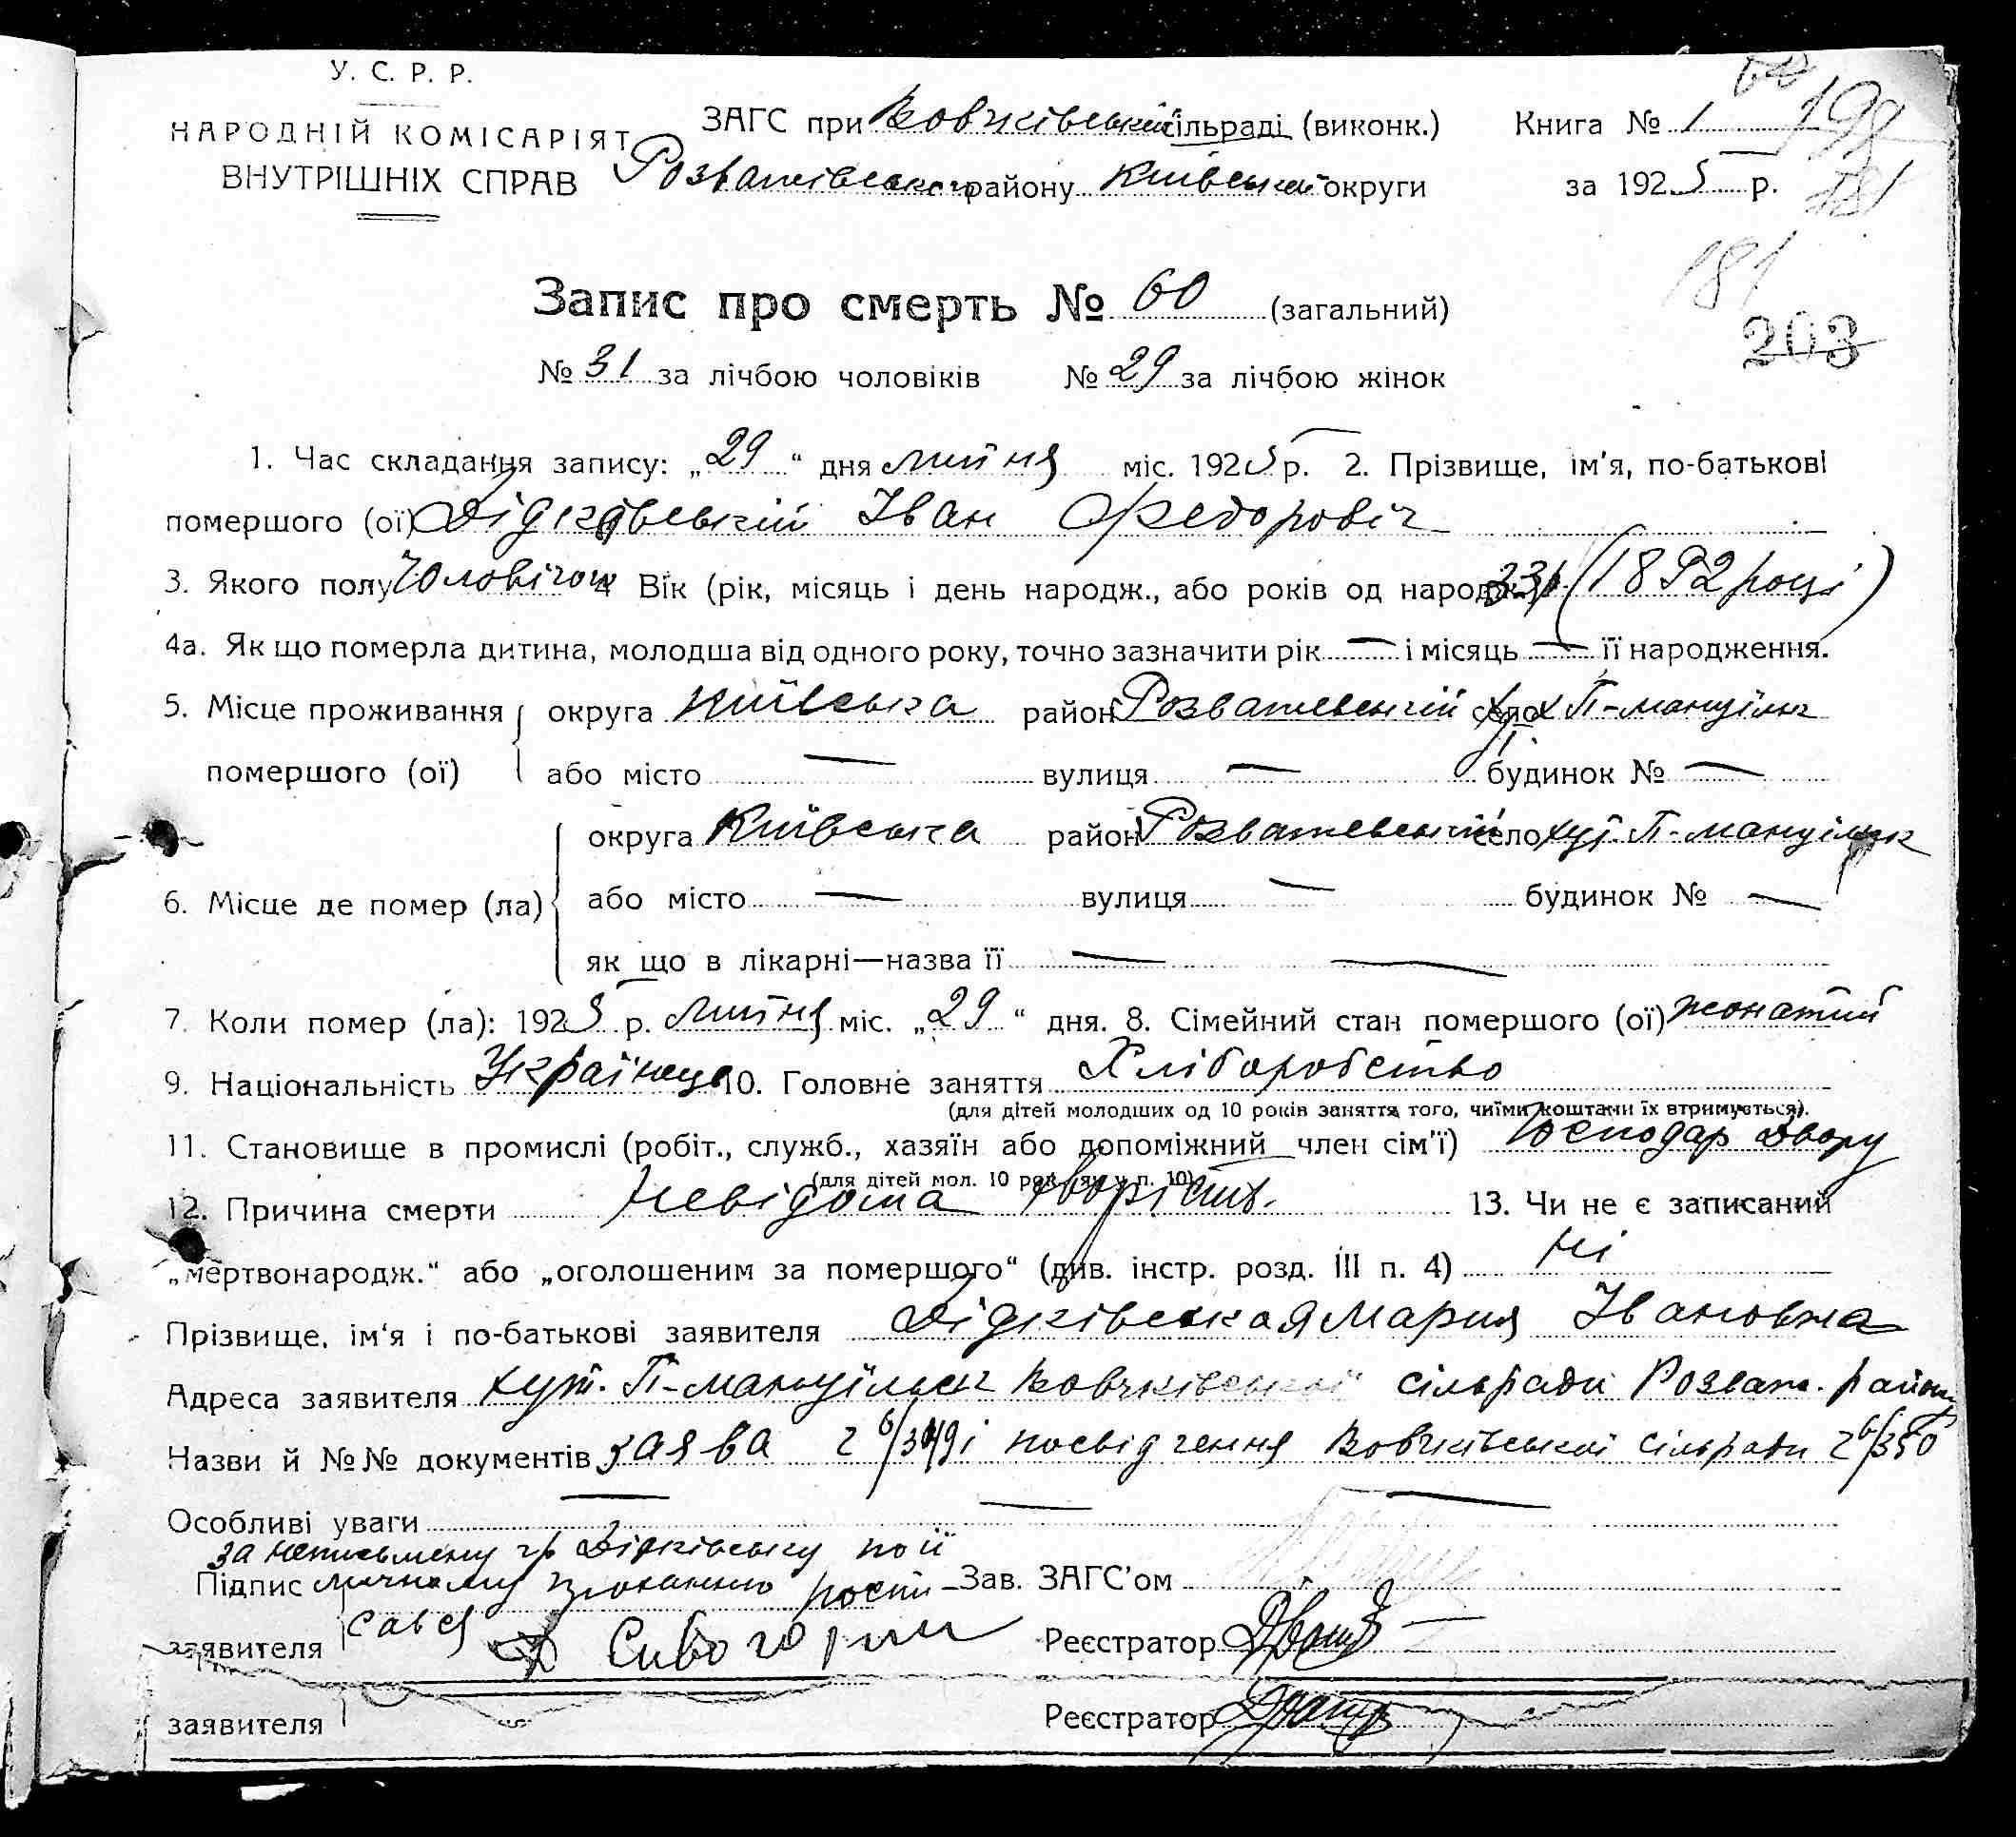 У. С. Р. Р.
НАРОДНІЙ КОМІСАРІЯТ
ВНУТРІШНІХ СПРАВ
ЗАГС при Вовчківській сільраді (виконк.)
Розважівського району Київської округи
Книга № 1
за 1925 р.
198
181
181
203
Запис про смерть № 60 (загальний)
№ 31 за лічбою чоловіків № 29 за лічбою жінок
1. Час складання запису: „29“ дня липня міс. 1925 р. 2. Прізвище, ім'я, по-батькові
помершого (ої) Дідківський Іван Федоровіч
3. Якого полу Чоловічого 4 Вік (рік, місяць і день народж., або років од народж.) 33 р. (1892 році)
4а. Як що померла дитина, молодша від одного року, точно зазначити рік — і місяць — її народження.
5. Місце проживання округа Київська район Розважевський село хут П-мануільск
помершого (ої) або місто — вулиця — будинок № —
округа Київська район Розважевський село хут. П-мануільск
6. Місце де помер (ла) або місто — вулиця — будинок № —
як що в лікарні—назва її — —
7. Коли помер (ла): 1925 р. липня міс. „29“ дня. 8. Сімейний стан помершого (ої) жонатий
9. Національність Українець 10. Головне заняття Хліборобство
(для дітей молодших од 10 років заняття того, чиїми коштами їх втримується).
11. Становище в промислі (робіт., служб., хазяїн або допоміжний член сім'ї) Господар двору
(для дітей мол. 10 рок. як у п. 10)
12. Причина смерти Невідома 13. Чи не є записаний
„мертвонародж.“ або „оголошеним за помершого“ (див. інстр. розд. III п. 4) Ні
Прізвище, ім'я і по-батькові заявителя Дідківская Мария Івановна
Адреса заявителя хут. П-мануільск Вовчківської сільради Розваж. району
Назви й №№ документів заява і посвідчення Вовчківської сільради
Особливі уваги — — —
за неписьмену гр Дідківську по її
Підпис личному проханню роспи- Зав. ЗАГС'ом
заявителя Сивогорпи Реєстратор
заявителя Реєстратор